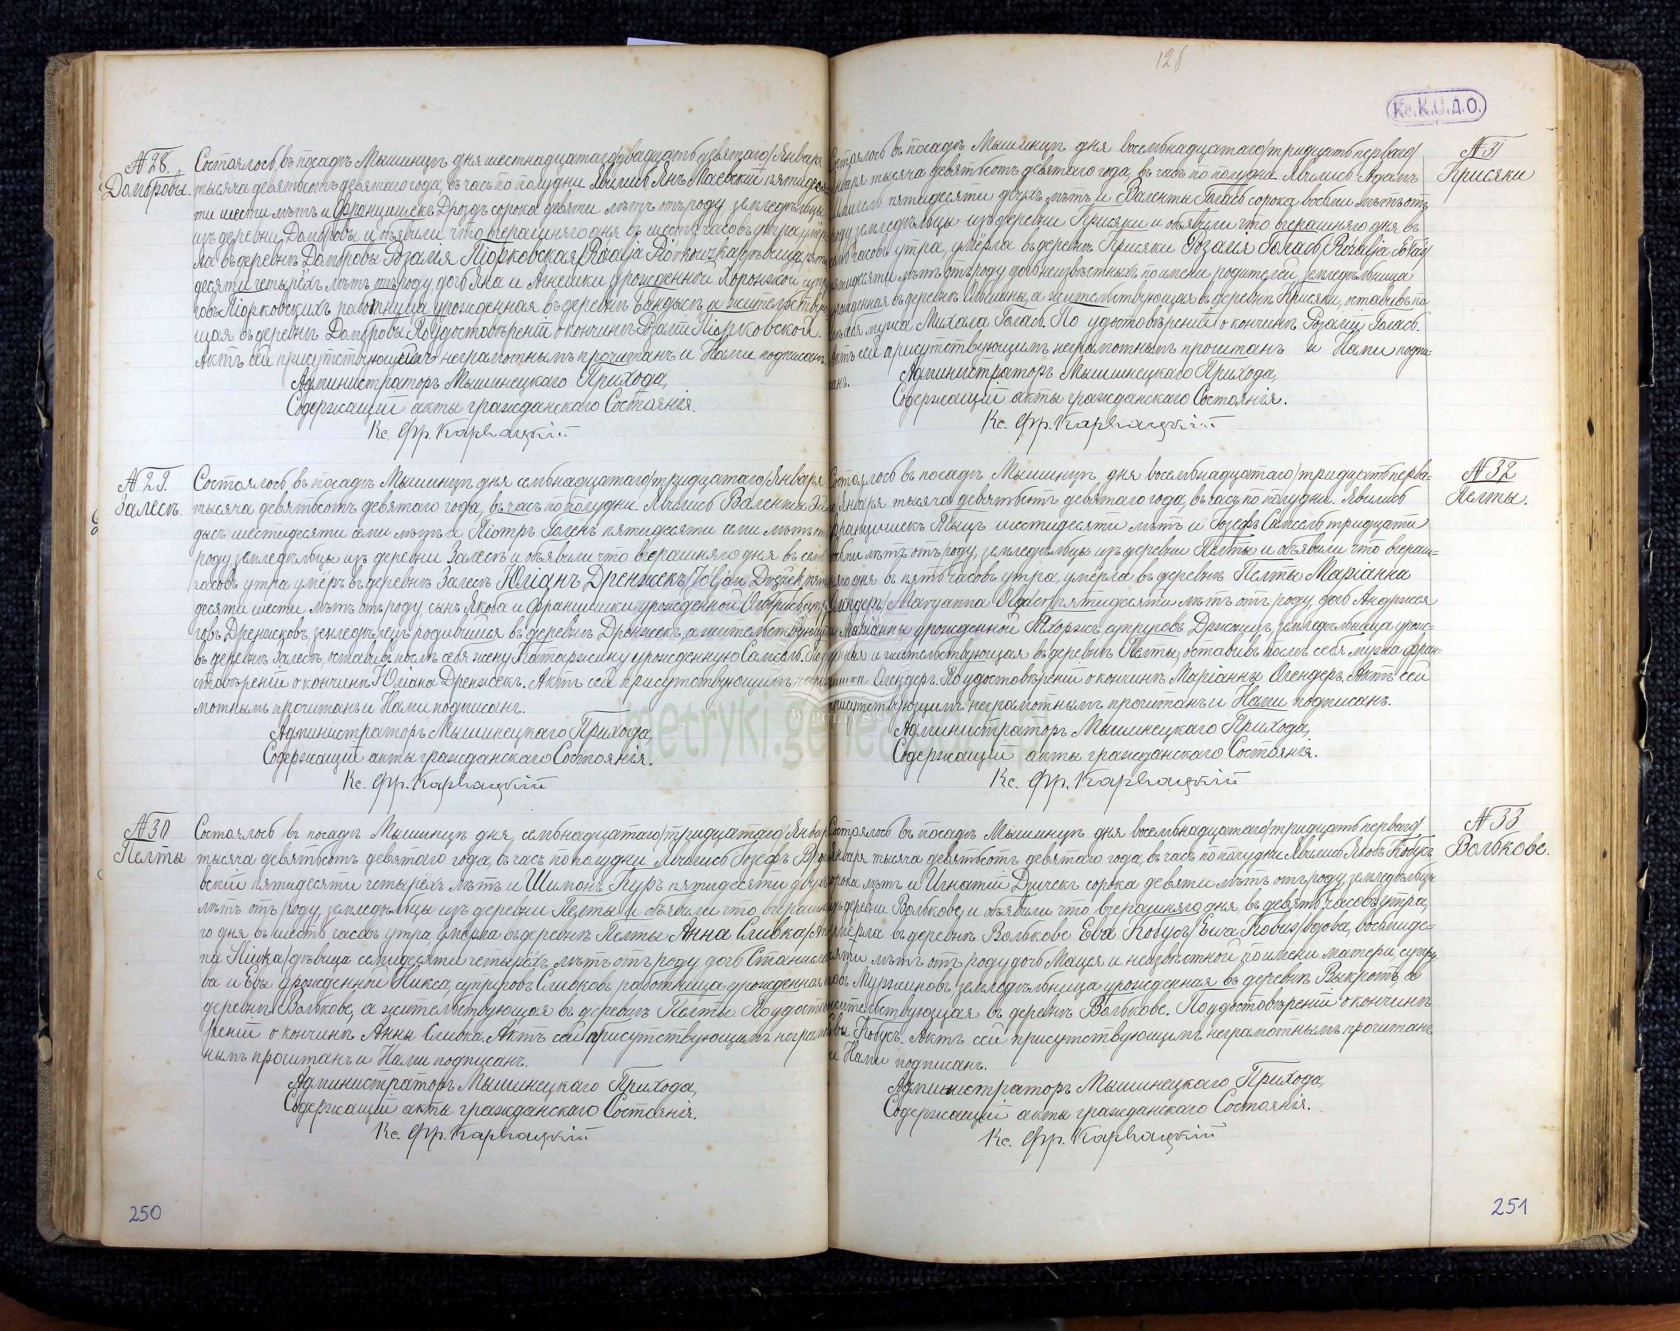 № 28.
Домбровы.
Состоялось въ посадѣ Мышинцѣ дня шестнадцатаго/двадцать девятаго/ Января
тысяча девятьсотъ девятаго года, въ часъ по полудни. Явились Янъ Маевскій пятидеся-
ти шести лѣтъ и Францишекъ Дроздъ сорока девяти лѣтъ отъ роду, земледѣльцы
изъ деревни Домбровы и объявили что вчерашняго дня въ шесть часовъ утра умер-
ла въ деревнѣ Домбровы Розалія Піорковская/Rozalja Piórkowska/дѣвица, пять-
десяти четырёхъ лѣтъ отъ роду, дочь Яна и Агнешки урожденной Хоронжей супру-
говъ Піорковскихъ работница урожденная въ деревнѣ а жительствую-
щая въ деревнѣ Домбровы. По удостовѣреніи о кончинѣ Розаліи Піорковской.
Актъ сей присутствующимъ неграмотнымъ прочитанъ и Нами подписанъ.
Администраторъ Мышинецкаго Прихода,
Содержащій акты гражданскаго Состоянія.
Кс. Фр. Карвацкій
№ 29.
Залесь.
Состоялось въ посадѣ Мышинцѣ дня семьнадцатаго/тридцатаго/ Января
тысяча девятьсотъ девятаго года, въ часъ по полудни. Явились Валенты
дысь шестидесяти семи лѣтъ и Піотръ Голенъ пятидесяти семи лѣтъ отъ
роду, земледѣльцы изъ деревни Залесь и объявили что вчерашняго дня въ семь
часовъ утра умёръ въ деревнѣ Залесь Юліанъ Дренжекъ/Juljan Drężek/ пять-
десяти шести лѣтъ отъ роду сынъ Якова и Францишки урожденной супру-
говъ Дренжековъ, земледѣлецъ родившійся въ деревнѣ Дренжекъ, а жительствующій
въ деревнѣ Залесь, оставивъ послѣ себя жену Катаржину урожденную Самсель. По удо-
стовѣреніи о кончинѣ Юліана Дренжекъ. Актъ сей присутствующимъ негра-
мотнымъ прочитанъ и Нами подписанъ.
Администраторъ Мышинецкаго Прихода,
Содержащій акты гражданскаго Состоянія.
Кс. Фр. Карвацкій
№ 30
Пелты
Состоялось въ посадѣ Мышинцѣ дня, семьнадцатаго/тридцатаго/ Января
тысяча девятьсотъ девятаго года, въ часъ по полудни. Явились Іозефъ
вскій пятидесяти четырёхъ лѣтъ и Шимонъ Куръ пятидесяти двухъ
лѣтъ отъ роду, земледѣльцы изъ деревни Пелты и объявили что вчерашня-
го дня въ шесть часовъ утра, умерла въ деревнѣ Пелты Анна Сливка/An-
na Śliwka/дѣвица семидесяти четырехъ лѣтъ отъ роду дочь Станисла-
ва и Евы урожденной Никса супруговъ Сливковъ работница урожденная въ
деревнѣ Волькове, а жительствующая въ деревнѣ Пелты. По удостовѣ-
реніи о кончинѣ Анны Сливка. Актъ сей присутствующимъ неграмот-
нымъ прочитанъ и Нами подписанъ.
Администраторъ Мышинецкаго Прихода,
Содержащій акты гражданскаго Состоянія.
Кс. Фр. Карвацкій
250
126
Кс. К.С.Д.О.
№ 31
Крисяки
Состоялось въ посадѣ Мышинцѣ дня восемьнадцатаго/тридцать перваго/
Января тысяча девятьсотъ девятаго года, въ часъ по полудни. Явились Адамъ
пятидесяти двухъ лѣтъ и Валенты Голасъ сорока восьми лѣтъ отъ
роду земледѣльцы изъ деревни Крисяки и объявили что вчерашняго дня въ
часовъ утра, умёрла въ деревнѣ Крисяки Розалія Голасъ/Rozalja Gołaś/
пятидесяти лѣтъ отъ роду дочь неизвѣстныхъ по имени родителей, земледѣльница
урожденная въ деревнѣ а жительствующая въ деревнѣ Крисяки, оставивъ по-
слѣ себя мужа Михала Голасъ. По удостовѣреніи о кончинѣ Розаліи Голасъ.
Актъ сей присутствующимъ неграмотнымъ прочитанъ и Нами подпи-
санъ.
Администраторъ Мышинецкаго Прихода,
Содержащій акты гражданскаго Состоянія.
Кс. Фр. Карвацкій
№ 32
Пелты.
Состоялось въ посадѣ Мышинцѣ, дня восемьнадцатаго/тридцать перва-
го/ Января тысяча девятьсотъ девятаго года, въ часъ по полудни. Явились
Францишекъ Пыщъ шестидесяти лѣтъ и Іозефъ Самсель тридцати
восьми лѣтъ отъ роду, земледѣльцы изъ деревни Пелты и объявили что вчераш-
няго дня въ пять часовъ утра, умёрла въ деревнѣ Пелты Маріанна
Олендеръ/Maryanna Olender/ пятидесяти лѣтъ отъ роду, дочь Андржея
и Маріанны урожденной супруговъ земледѣльница урож-
денная и жительствующая въ деревнѣ Пелты, оставивъ послѣ себя мужа Фран-
цишка Олендеръ. По удостовѣреніи о кончинѣ Маріанны Олендеръ. Актъ сей
присутствующимъ неграмотнымъ прочитанъ и Нами подписанъ.
Администраторъ Мышинецкаго Прихода,
Содержащій акты гражданскаго Состоянія.
Кс. Фр. Карвацкій
№ 33
Волькове.
Состоялось въ посадѣ Мышинцѣ дня восемьнадцатаго/тридцать перваго/
Января тысяча девятьсотъ девятаго года, въ часъ по полудни. Явились Яковъ Кобусъ
сорока лѣтъ и Игнатій Дзичекъ сорока девяти лѣтъ отъ роду, земледѣльцы
изъ деревни Волькове, и объявили что вчерашняго дня, въ девять часовъ утра,
умёрла въ деревнѣ Волькове Ева Кобусъ/Ewa Kobus/вдова, восьмиде-
сяти лѣтъ отъ роду дочь Мацея и неизвѣстной по имени матери, супру-
говъ Муржиновъ, земледѣльница урожденная въ деревнѣ Выкротъ, а
жительствующая въ деревнѣ Волькове. По удостовѣреніи о кончинѣ
Евы Кобусъ. Актъ сей присутствующимъ неграмотнымъ прочитанъ
и Нами подписанъ.
Администраторъ Мышинецкаго Прихода,
Содержащій акты гражданскаго Состоянія.
Кс. Фр. Карвацкій
251